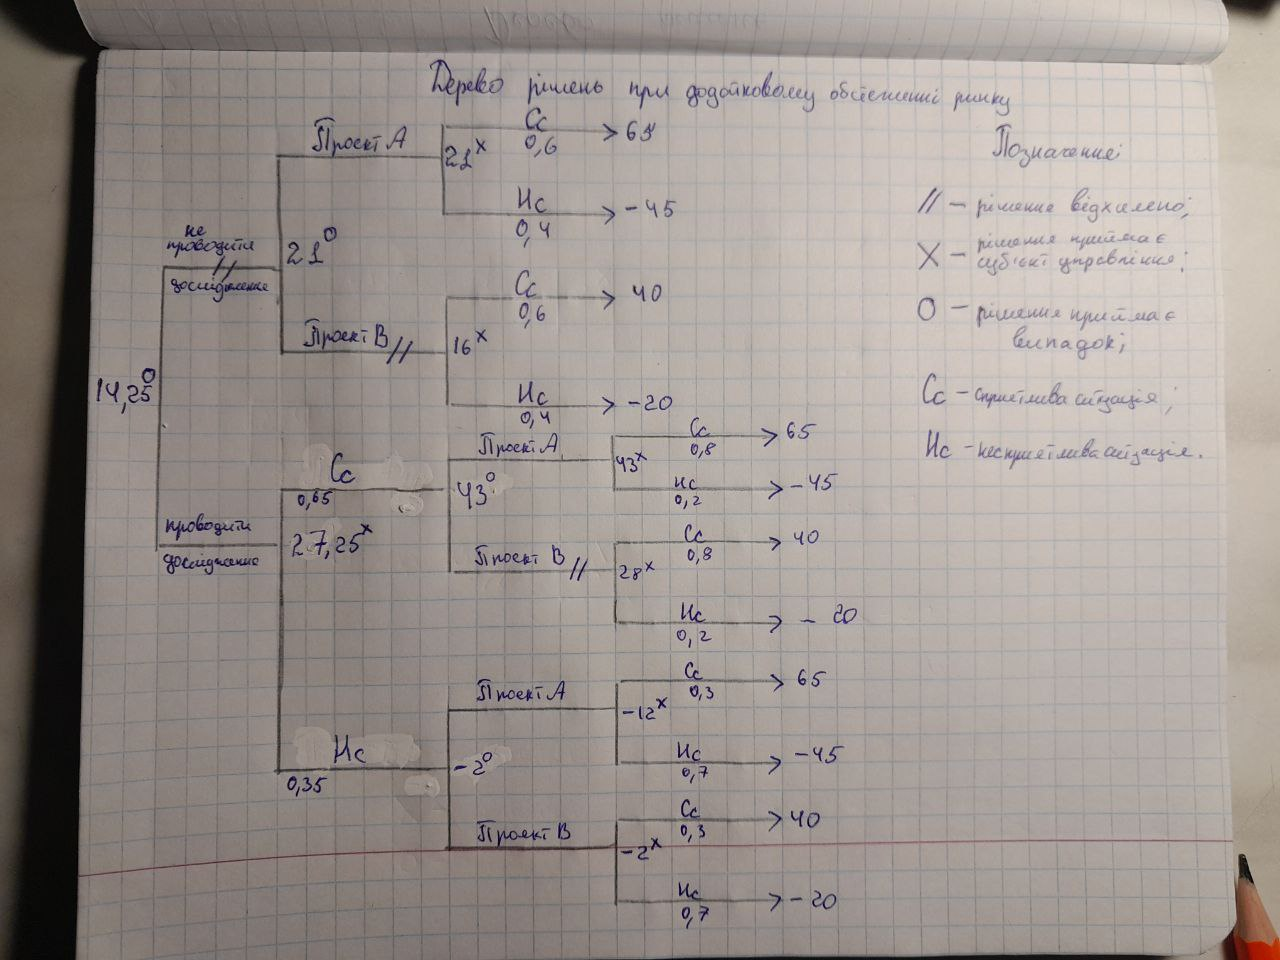 Дерево рішень при додатковому обстеженні ринку
Проект А
21 х
Сс
0,6
65
Нс
0,4
-45
не
проводити //
дослідження
21 0
Проект В //
16 х
Сс
0,6
40
Нс
0,4
-20
14,25 0
проводити
дослідження
27,25 х
Сс
0,65
43 0
Проект А
43 х
Сс
0,8
65
Нс
0,2
-45
Проект В //
28 х
Сс
0,8
40
Нс
0,2
- 20
Нс
0,35
-2 0
Проект А
-12 х
Сс
0,3
65
Нс
0,7
-45
Проект В
-2 х
Сс
0,3
40
Нс
0,7
-20
Позначення:
// - рішення відхилено;
Х - рішення приймає
суб'єкт управління;
О - рішення приймає
випадок;
Сс - сприятлива ситуація;
Нс - несприятлива ситуація.